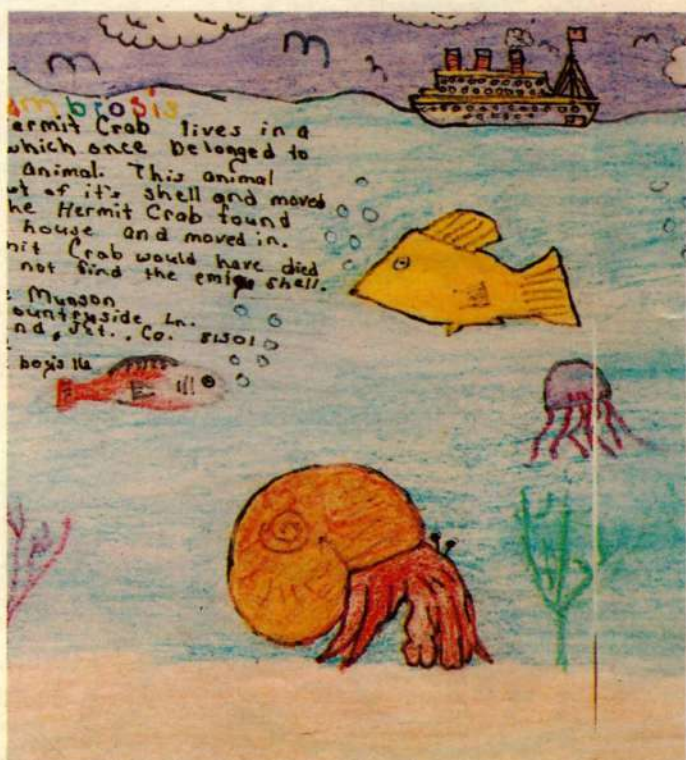 mbrosis
ermit Crab lives in a
which once belonged to
animal. This animal
ut of it's shell and moved
he Hermit Crab found
house and moved in.
mit Crab would have died
not find the shell.
Munson
ountryside Ln.
nd, Jct., Co. 81501